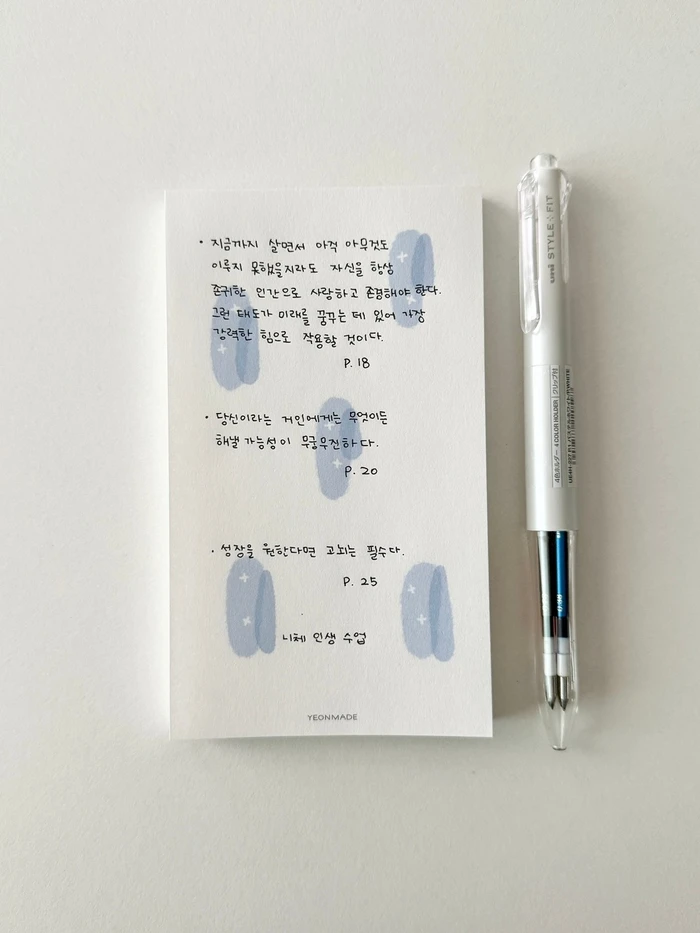 • 지금까지 살면서 아직 아무것도
이루지 못했을지라도 자신을 항상
존귀한 인간으로 사랑하고 존경해야 한다.
그런 태도가 미래를 꿈꾸는 데 있어 가장
강력한 힘으로 작용할 것이다.
P. 18
• 당신이라는 거인에게는 무엇이든
해낼 가능성이 무궁무진하다.
P. 20
• 성장을 원한다면 고뇌는 필수다.
P. 25
니체 인생 수업
YEONMADE
uni STYLE FIT
4色ホルダー 4 COLOR HOLDER クリップ付